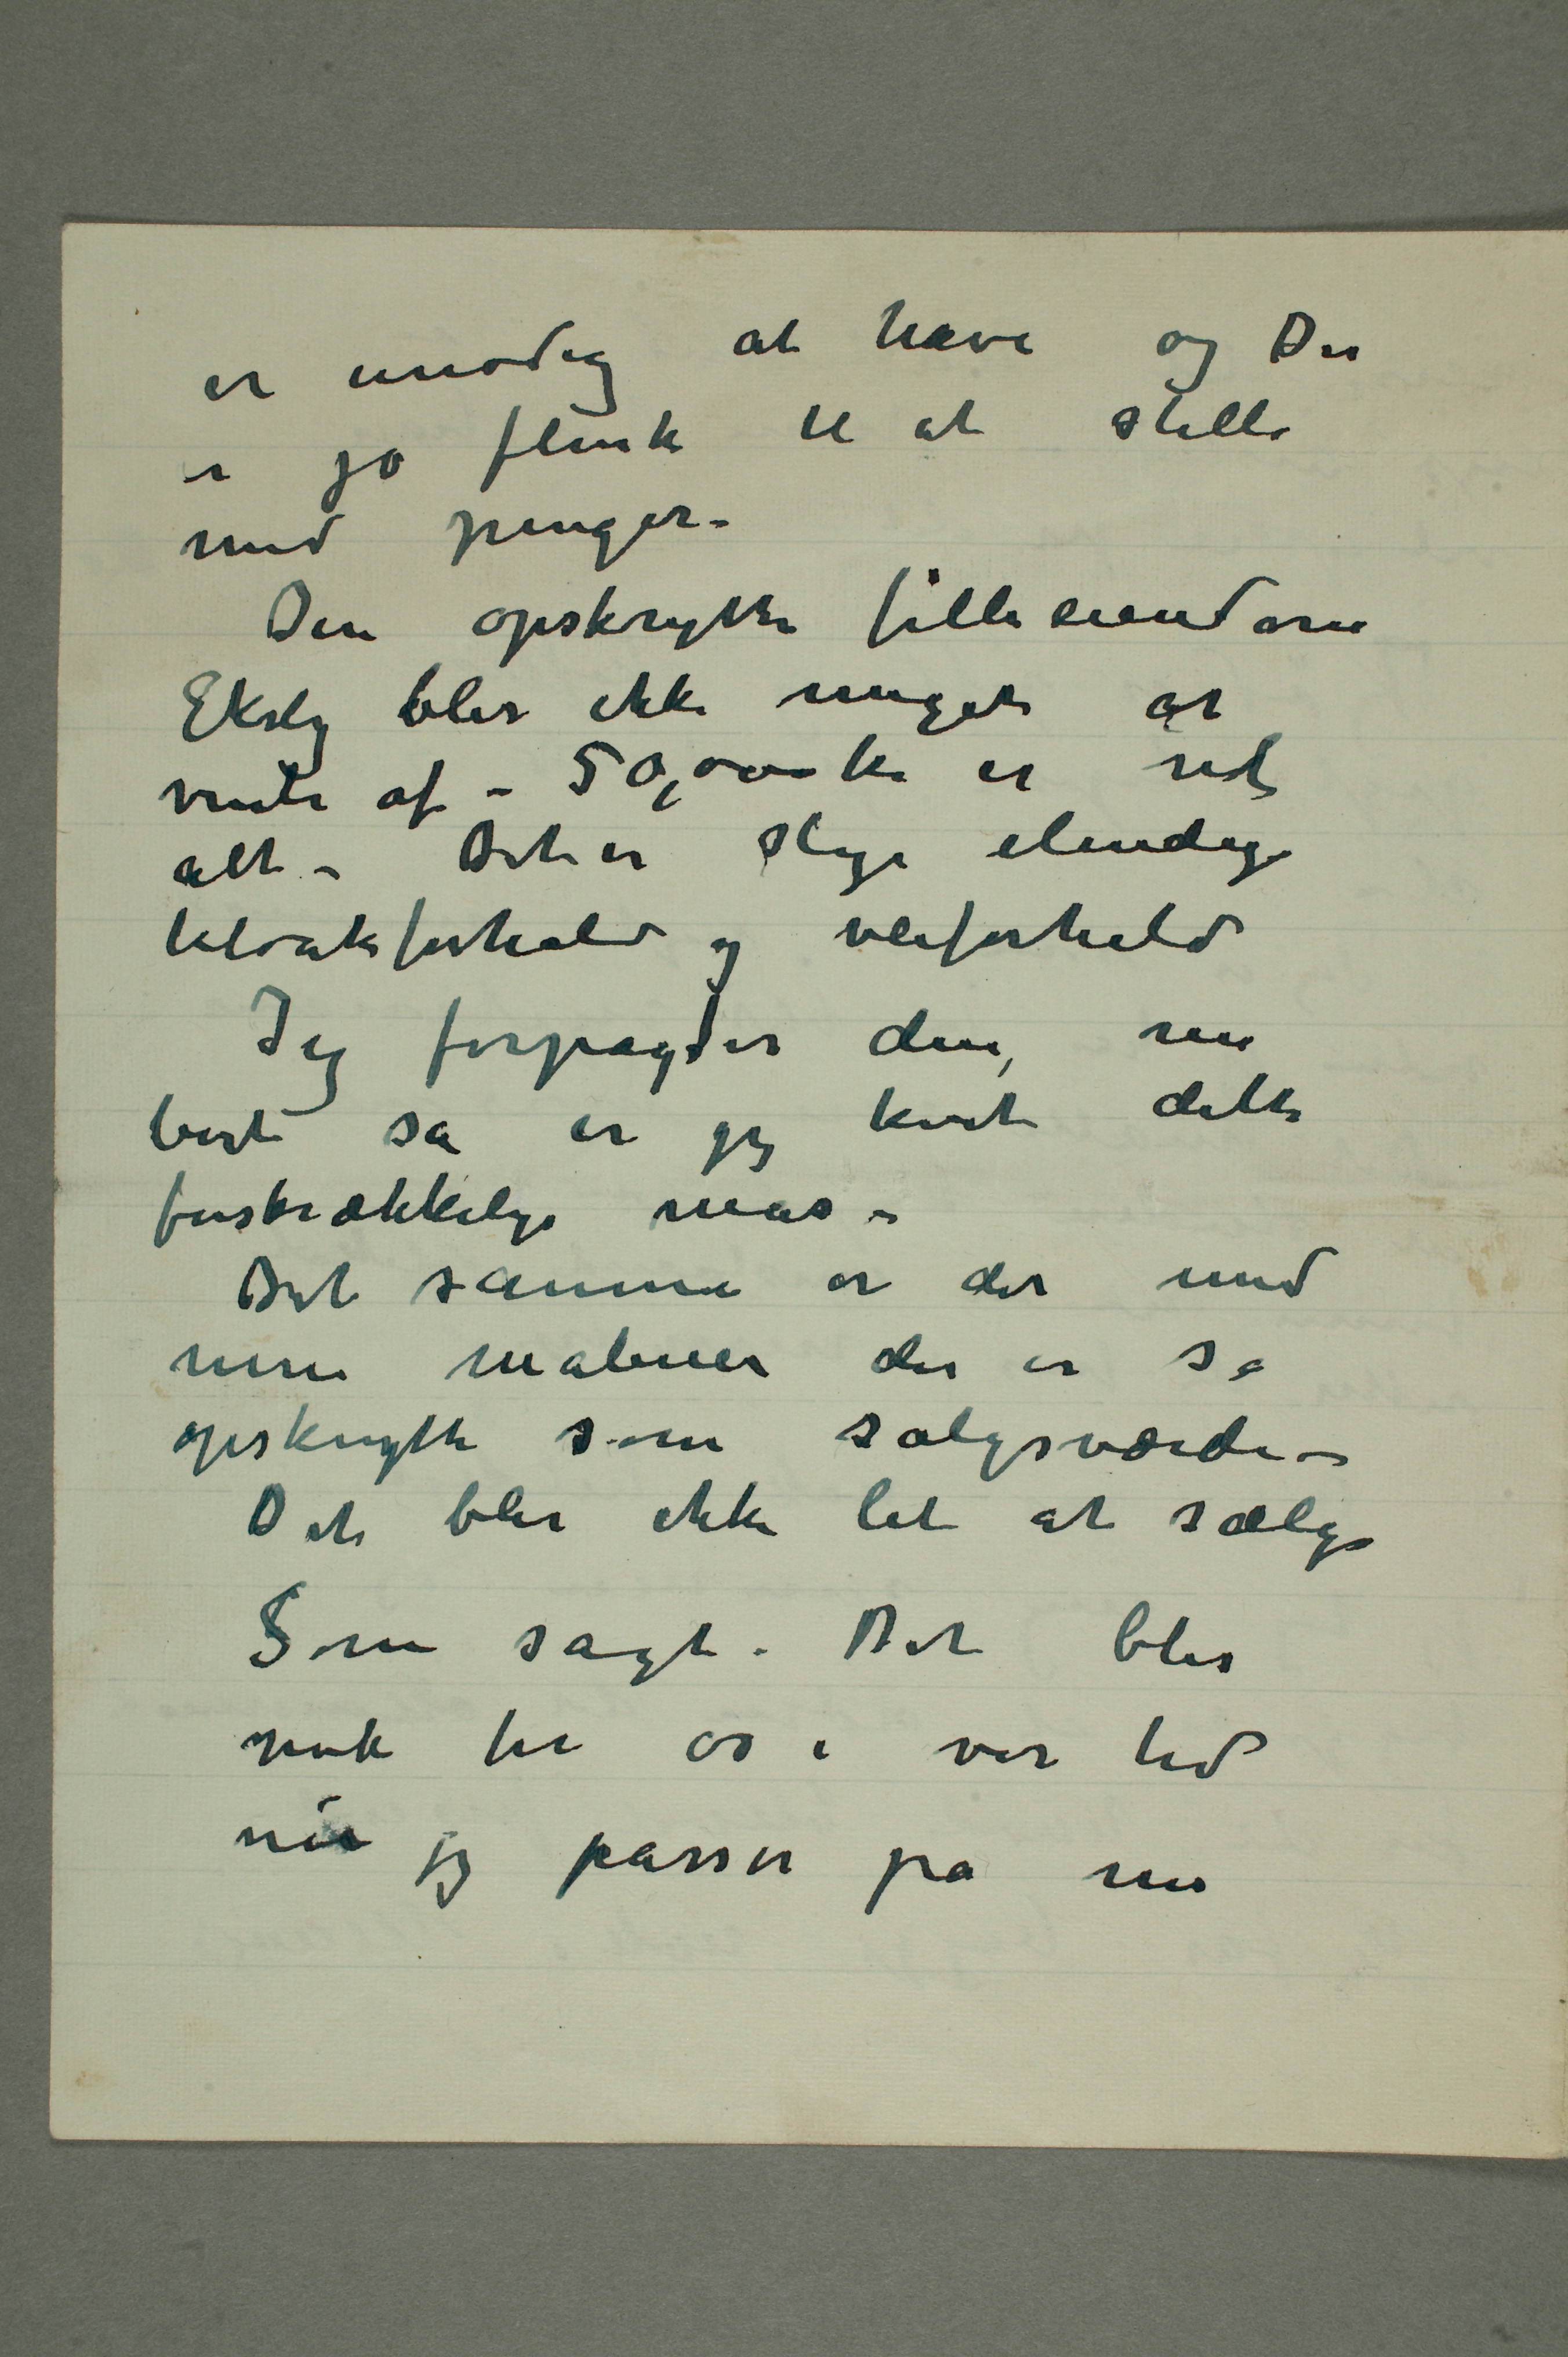 er unødig at have og Du
er jo flink til at stelle
med penger –
Den opskrytte filleeiendom
Ekely blir ikke meget at
vente af – 50,000 kr er
alt – Det er slige elendige
kloakforhold og veiforhold
Jeg forpagter den,
bort så er jeg kvit dette
forskrækkelige mas –
Det samme er det med
mine malerier der er så
opskrytte som salgsværdi –
Det blir ikke let at sælge
Som sagt. Det blir
nok for os i vor tid
når jeg passer på